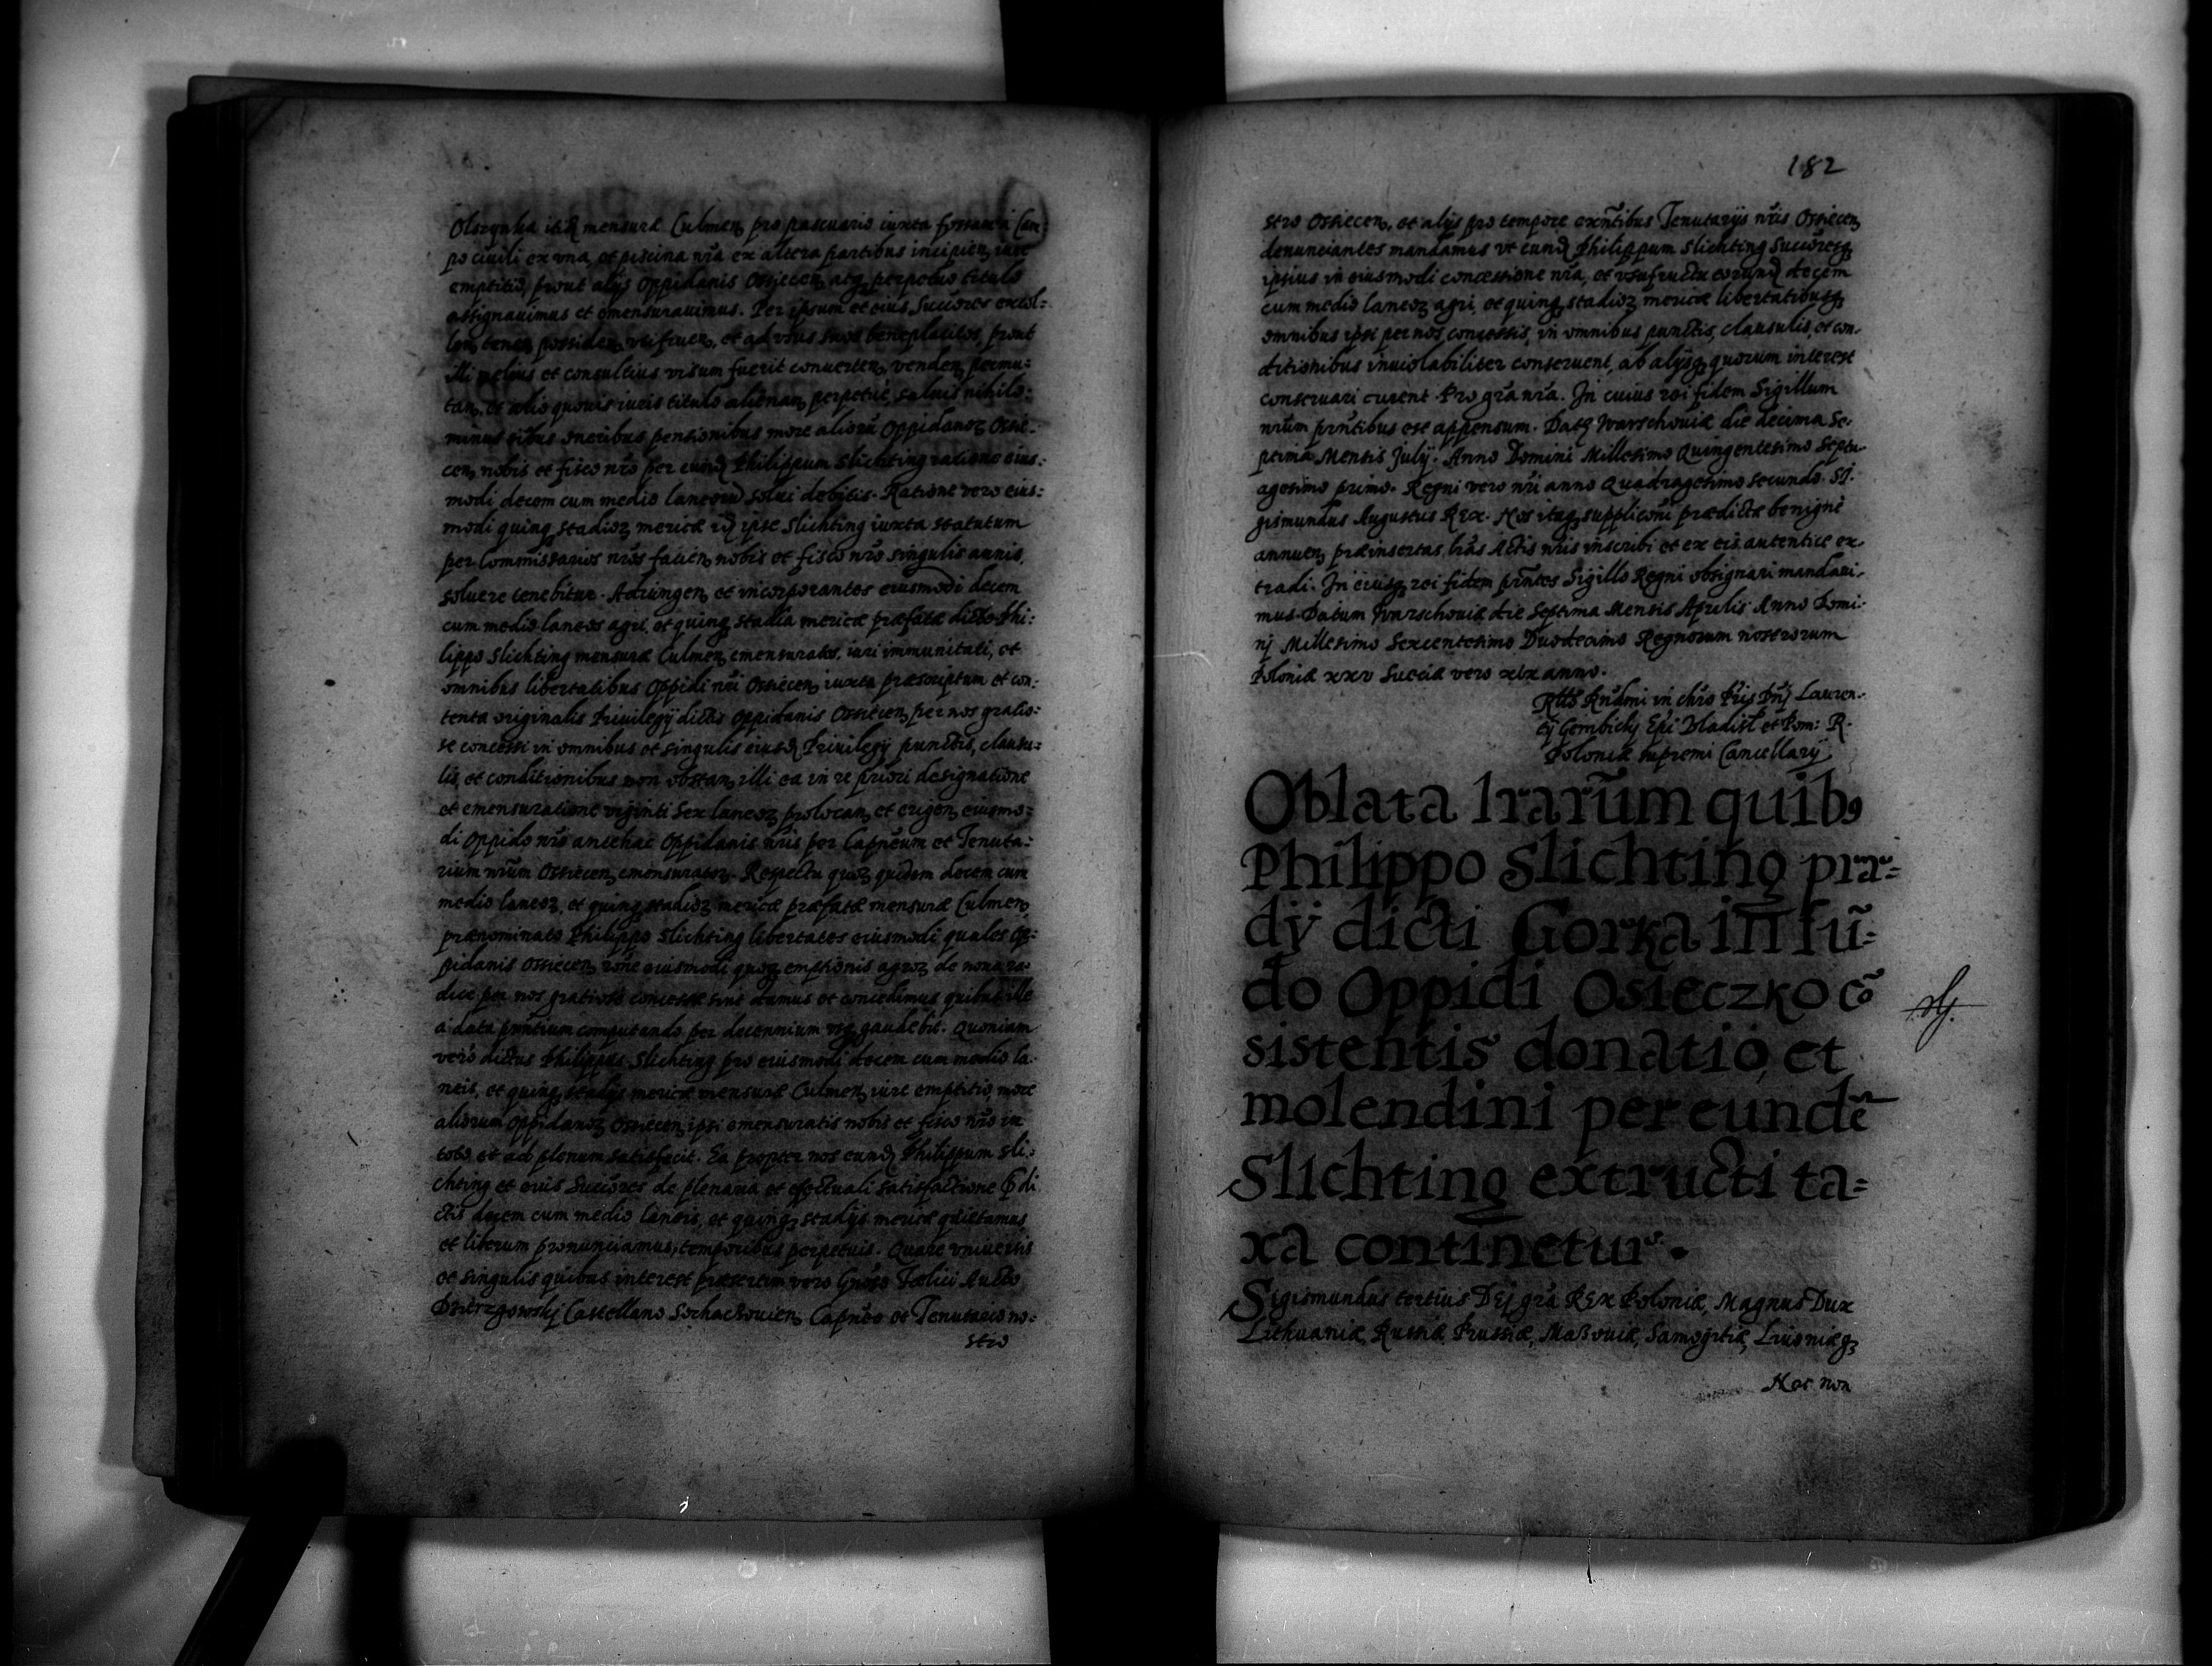 Olszynka itid mensuræ Culmen, pro pascuario iuxta fossam a Cam:
po ciuili ex vna, et piscina nra ex altera partibus incipien, iure
emptitio, prout alijs Oppidanis Ossiecen, atq, perpetuo titulo
assignauimus et emensurauimus. Per ipsum et eius Succõres excol:
len, tenen, possiden, vtifruen, et ad vsus suos beneplacitos, prout
illi melius et consultius visum fuerit conuerten, venden, permu:
tan, et alio quouis iuris titulo alienan, perpetuè, saluis nihilo:
minus oibus oneribus pensionibus more aliorũ Oppidanoꝝ Ossie:
cen, nobis et fisco nr̃o per eund Philippum Slichting ratione eius:
modi, decem cum medio laneorũ solui debitis. Ratione vero eius:
modi quinq, stadioꝝ mericæ id ipse Slichting iuxta statutum
per Commissarios nr̃os facien, nobis et fisco nr̃o singulis annis
soluere tenebitur. Adiungen, et incorporantes eiusmodi decem
cum medio laneos agri, et quinq, stadia mericæ præfatæ dicto Phi:
lippo Slichting mensuræ Culmen, emensuratos, iuri immunitati, et
omnibus libertatibus Oppidi nr̃i Ossiecen, iuxta præscriptum et con:
tenta originalis Priuilegij dictis Oppidanis Ossiecen, per nos gratio:
se concessi in omnibus et singulis eiusd Priuilegij punctis, clausu:
lis, et conditionibus non obstan, illi ea in re priori designatione
et emensuratione viginti Sex laneoꝝ prolocan, et erigen, eiusmo:
di Oppido nr̃o antehac Oppidanis nr̃is per Capneum et Tenuta:
rium nr̃um Ossiecen, emensuratoꝝ. Respectu quoꝝ quidem decem cum
medio laneoꝝ, et quinq, stadioꝝ mericæ præfatæ mensuræ Culmen,
prænominato Philippo Slichting libertates eiusmodi quales Op:
pidanis Ossiecen, rõne eiusmodi quoq, emptionis agroꝝ de noua ra:
dice per nos gratiose concessæ sint damus et concedimus quibus ille
a data pñtium computando per decennium vsq, gaudebit. Quoniam
vero dictus Philippus Slichting pro eiusmodi decem cum medio la:
neis, et quinq, stadijs mericæ mensuræ Culmen, iure emptitio, more
aliorum Oppidanoꝝ Ossiecen, ipsi emensuratis nobis et fisco nr̃o in
toto et ad plenum satisfecit. Ea propter nos eund Philippum Sli:
chting et eius Succõres de plenaria et effectuali satisfactione ꝓ di
ctis decem cum medio laneis, et quinq, stadijs mericæ quietamus
et liberum pronunciamus, temporibus perpetuis. Quare vniuersis
et singulis quibus interest præsertim vero Gnoso Fælici Aucto
Dzierzgowskj Castellano Sochachouien, Capnẽo et Tenutario no:
stro
182
stro Ossiecen, et alijs pro tempore exñtibus Tenutarijs nr̃is Ossiecen,
denunciantes mandamus vt eund Philippum Slichting Succõresq,
ipsius in eiusmodi concessione nr̃a, et vsufructu eorund decem
cum medio laneoꝝ agri, et quinq, stadioꝝ mericæ libertatibusq,
omnibus ipsi per nos concessis, in omnibus punctis, clausulis, et con:
ditionibus inuiolabiliter conseruent, ab alijsq, quorum interest
conseruari curent. Pro gr̃a nr̃a. In cuius rei fidem Sigillum
nr̃um pñtibus est appensum. Dat, Warschouiæ die decima Se:
ptima Mensis Julij. Anno Domini Millesimo Quingentesimo Septu:
agesimo primo. Regni vero nr̃i anno Quadragesimo secundo. SI:
gismundus Augustus REX. Nos itaq, supplicõni prædictæ benignè
annuen, præinsertas lr̃as Actis nr̃is inscribi et ex eis autenticè ex:
tradi. In cuiusq, rei fidem pñtes Sigillo Regni obsignari mandaui:
mus. Datum Warschouiæ die Septima Mensis Aprilis Anno Domi:
nj Millesimo Sexcentesimo Duodecimo Regnorum nostrorum
Poloniæ xxv Sueciæ vero xix anno.
Rtto Rndmi in chro Pris Dnj Lauren:
tij Gembickj Epi Vladisl et Pom: R.
Poloniæ supremi Cancellarij
Oblata lrarũm quibꝯ
Philippo Slichting præ=
dÿ dicti Gorka in fũ=
do Oppidi Osieczko cõ
sistentis donatio, et
molendini per eundẽ
Slichting extructi ta=
xa continetur.
Sigismundus tertius DEj gr̃a REX Poloniæ, Magnus Dux
Lithuaniæ, Russiæ, Prussiæ, Maßouiæ, Samogitiæ, Liuoniæq,
Nec non